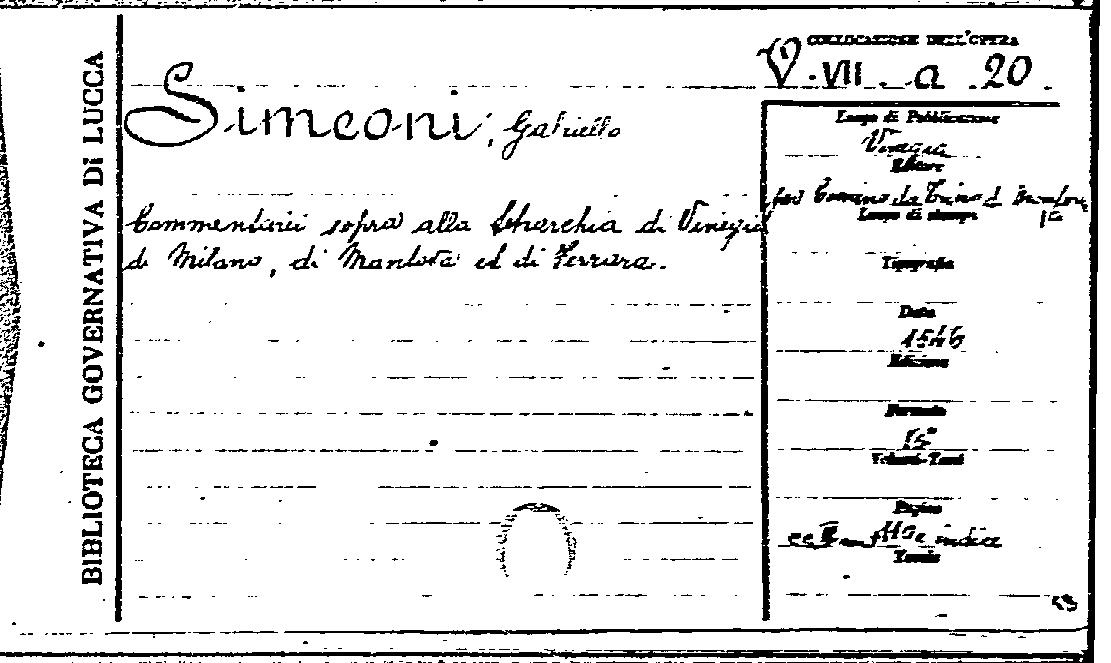 BIBLIOTECA GOVERNATIVA DI LUCCA
COLLOCAZIONE DELL'OPERA
V. VII. a. 20
Simeoni, Gabriello
Commentarii sopra alla tetrarchia di Vinegia
di Milano, di Mantova et di Ferrara.
Luogo di Pubblicazione
Vinegia
Editore
per Comino da Trino d
Luogo di stampa
Tipografia
Data
1546
Edizione
Formato
15°
Volumi-Tomi
Pagine
indice
Tavole